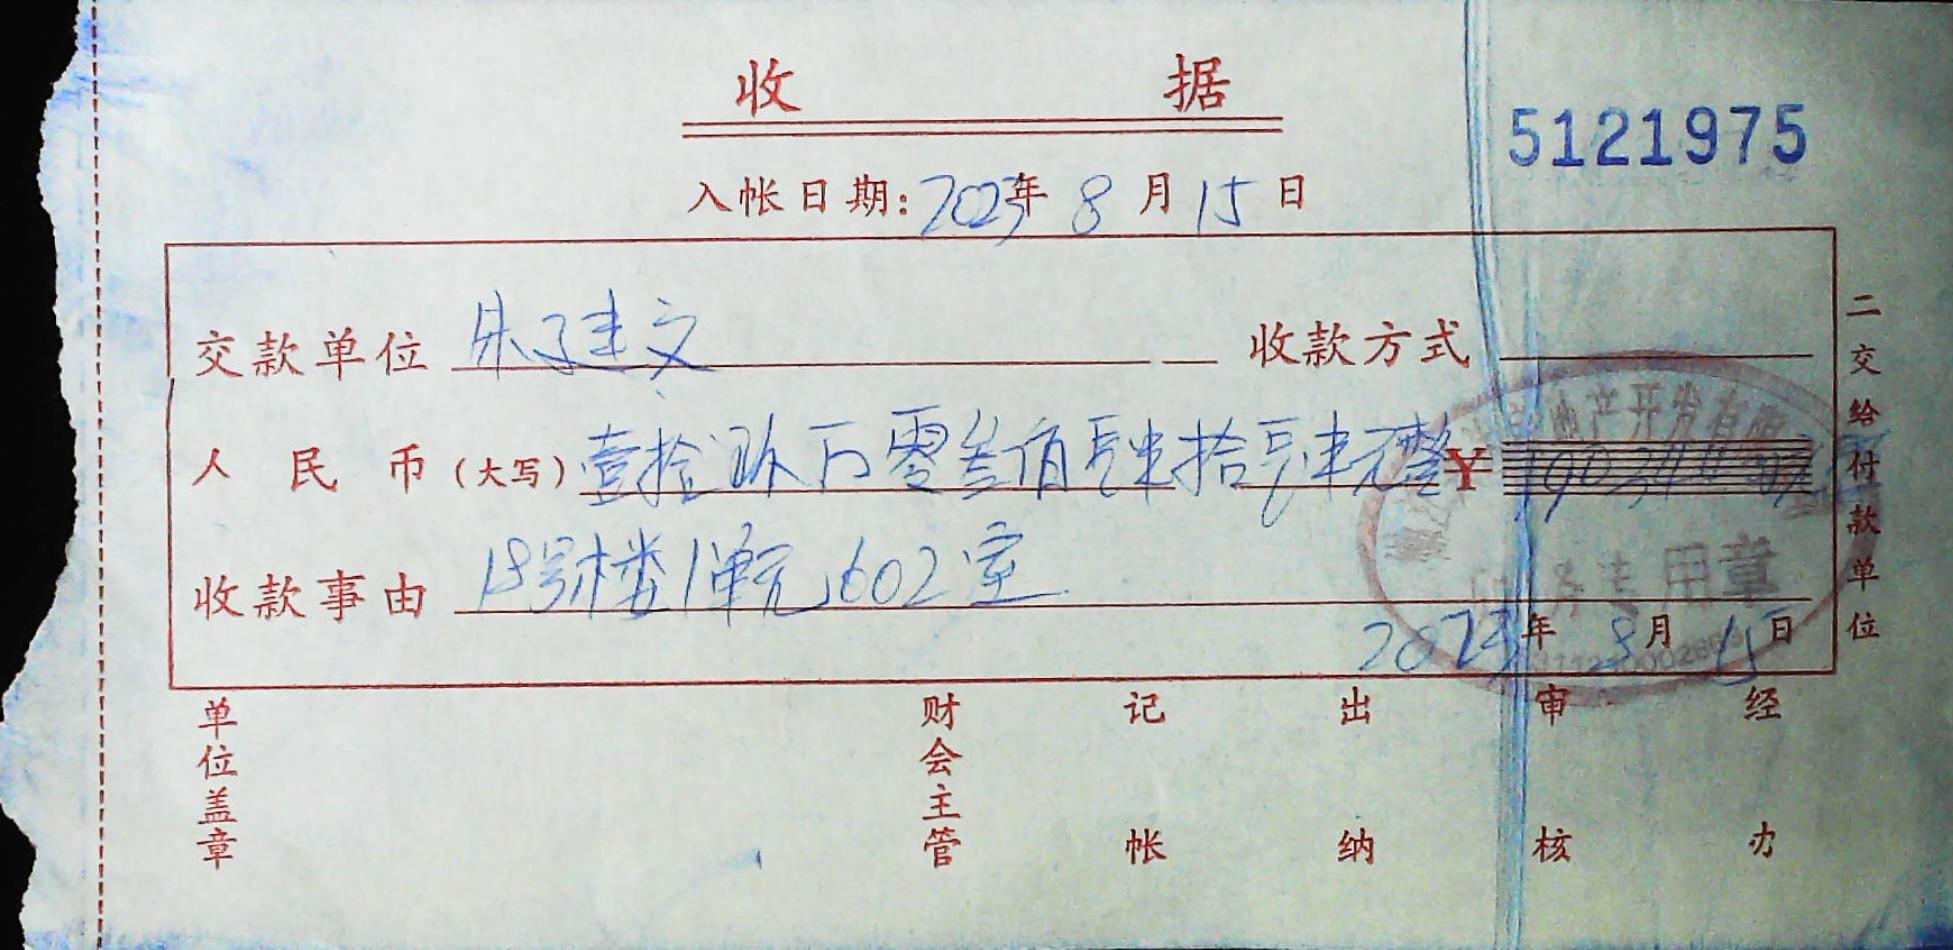 收 据
5121975
入帐日期: 2023年 8 月 15 日
交款单位 朱建文 收款方式
人民币(大写) 壹拾玖万零叁佰肆拾肆元整 ¥ 190344.00
收款事由 18号楼1单元1602室
2023年 8月 15日
地产开发有限
专用章
二交给付款单位
单位盖章 财会主管 记帐 出纳 审核 经办